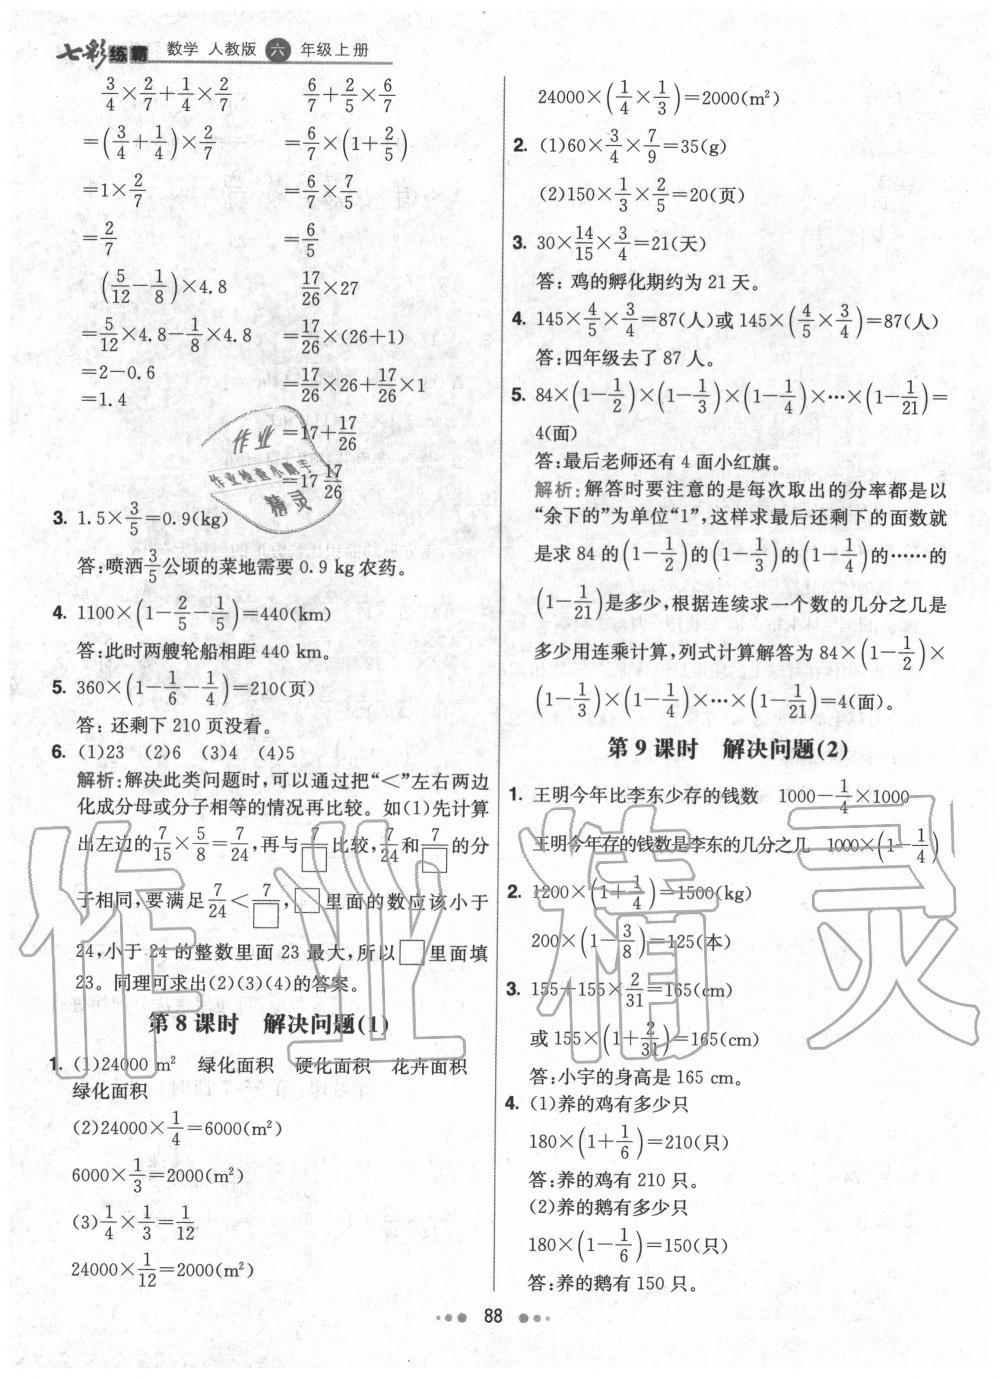 七彩练霸 数学 人教版 六 年级上册
3/4×2/7+1/4×2/7
=(3/4+1/4)×2/7
=1×2/7
=2/7
6/7+2/5×6/7
=6/7×(1+2/5)
=6/7×7/5
=6/5
(5/12-1/8)×4.8
=5/12×4.8-1/8×4.8
=2-0.6
=1.4
17/26×27
=17/26×(26+1)
=17/26×26+17/26×1
=17+17/26
=17 17/26
3. 1.5×3/5=0.9(kg)
答:喷洒3/5公顷的菜地需要 0.9 kg 农药。
4. 1100×(1-2/5-1/5)=440(km)
答:此时两艘轮船相距 440 km。
5. 360×(1-1/6-1/4)=210(页)
答: 还剩下 210 页没看。
6. (1)23 (2)6 (3)4 (4)5
解析:解决此类问题时,可以通过把“<”左右两边
化成分母或分子相等的情况再比较。如(1)先计算
出左边的7/15×5/8=7/24,再与7/□比较,7/24和7/□的分
子相同,要满足7/24<7/□,□里面的数应该小于
24,小于 24 的整数里面 23 最大,所以□里面填
23。同理可求出(2)(3)(4)的答案。
第 8 课时 解决问题(1)
1. (1)24000 m² 绿化面积 硬化面积 花卉面积
绿化面积
(2)24000×1/4=6000(m²)
6000×1/3=2000(m²)
(3)1/4×1/3=1/12
24000×1/12=2000(m²)
24000×(1/4×1/3)=2000(m²)
2. (1)60×3/4×7/9=35(g)
(2)150×1/3×2/5=20(页)
3. 30×14/15×3/4=21(天)
答: 鸡的孵化期约为 21 天。
4. 145×4/5×3/4=87(人)或 145×(4/5×3/4)=87(人)
答:四年级去了 87 人。
5. 84×(1-1/2)×(1-1/3)×(1-1/4)×…×(1-1/21)=
4(面)
答:最后老师还有 4 面小红旗。
解析:解答时要注意的是每次取出的分率都是以
“余下的”为单位“1”,这样求最后还剩下的面数就
是求 84 的(1-1/2)的(1-1/3)的(1-1/4)的……的
(1-1/21)是多少,根据连续求一个数的几分之几是
多少用连乘计算,列式计算解答为 84×(1-1/2)×
(1-1/3)×(1-1/4)×…×(1-1/21)=4(面)。
第 9 课时 解决问题(2)
1. 王明今年比李东少存的钱数 1000-1/4×1000
王明今年存的钱数是李东的几分之几 1000×(1-1/4)
2. 1200×(1+1/4)=1500(kg)
200×(1-3/8)=125(本)
3. 155+155×2/31=165(cm)
或 155×(1+2/31)=165(cm)
答:小宇的身高是 165 cm。
4. (1)养的鸡有多少只
180×(1+1/6)=210(只)
答:养的鸡有 210 只。
(2)养的鹅有多少只
180×(1-1/6)=150(只)
答:养的鹅有 150 只。
88
作业
作业检查小助手
精灵
作业精灵